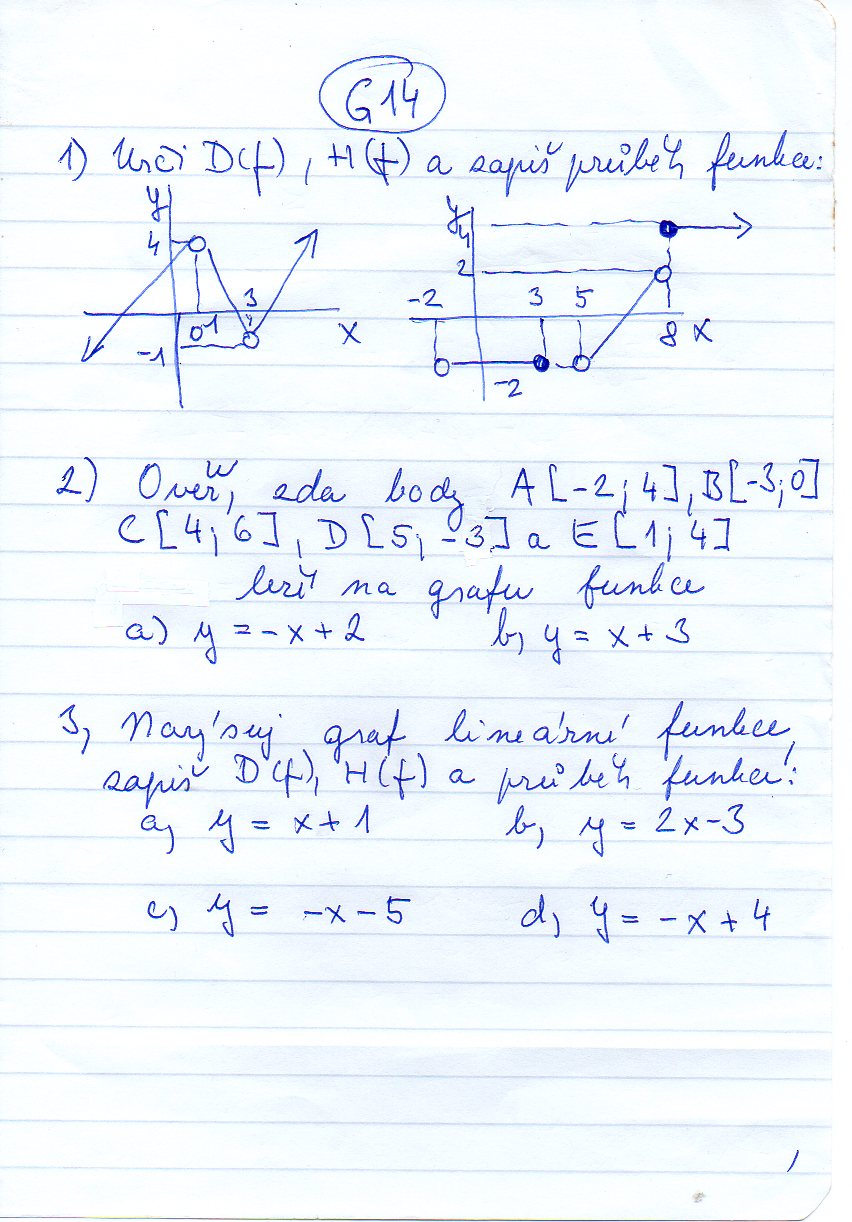 G14
1) Urči D(f), H(f) a zapiš průběh funkce:
y
4
3
0
1
-1
x
y
4
2
-2
3
5
8
x
-2
2) Ověř, zda body A[-2;4], B[-3;0]
C[4;6], D[5;-3] a E[1;4]
leží na grafu funkce
a) y = -x + 2
b, y = x + 3
3, Narýsuj graf lineární funkce,
zapiš D(f), H(f) a průběh funkcí:
a, y = x + 1
b, y = 2x - 3
c, y = -x - 5
d, y = -x + 4